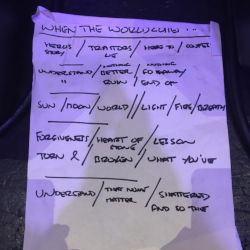 WHEN THE WORLD
HEROS / TRAITORS / HERE TO / 
STORY / LIE
NOTHING / NOTHING
UNDERSTAND / BETTER / FO
" / RUIN / END OF
SUN / MOON / WORLD // LIGHT / FIRE / BREATH
FORGIVENESS / HEART OF / LESSON
STONE
TORN & / BROKEN / WHAT YOU'VE
UNDERSTAND / THAT / SHATTERED
MATTER / AND SO THE